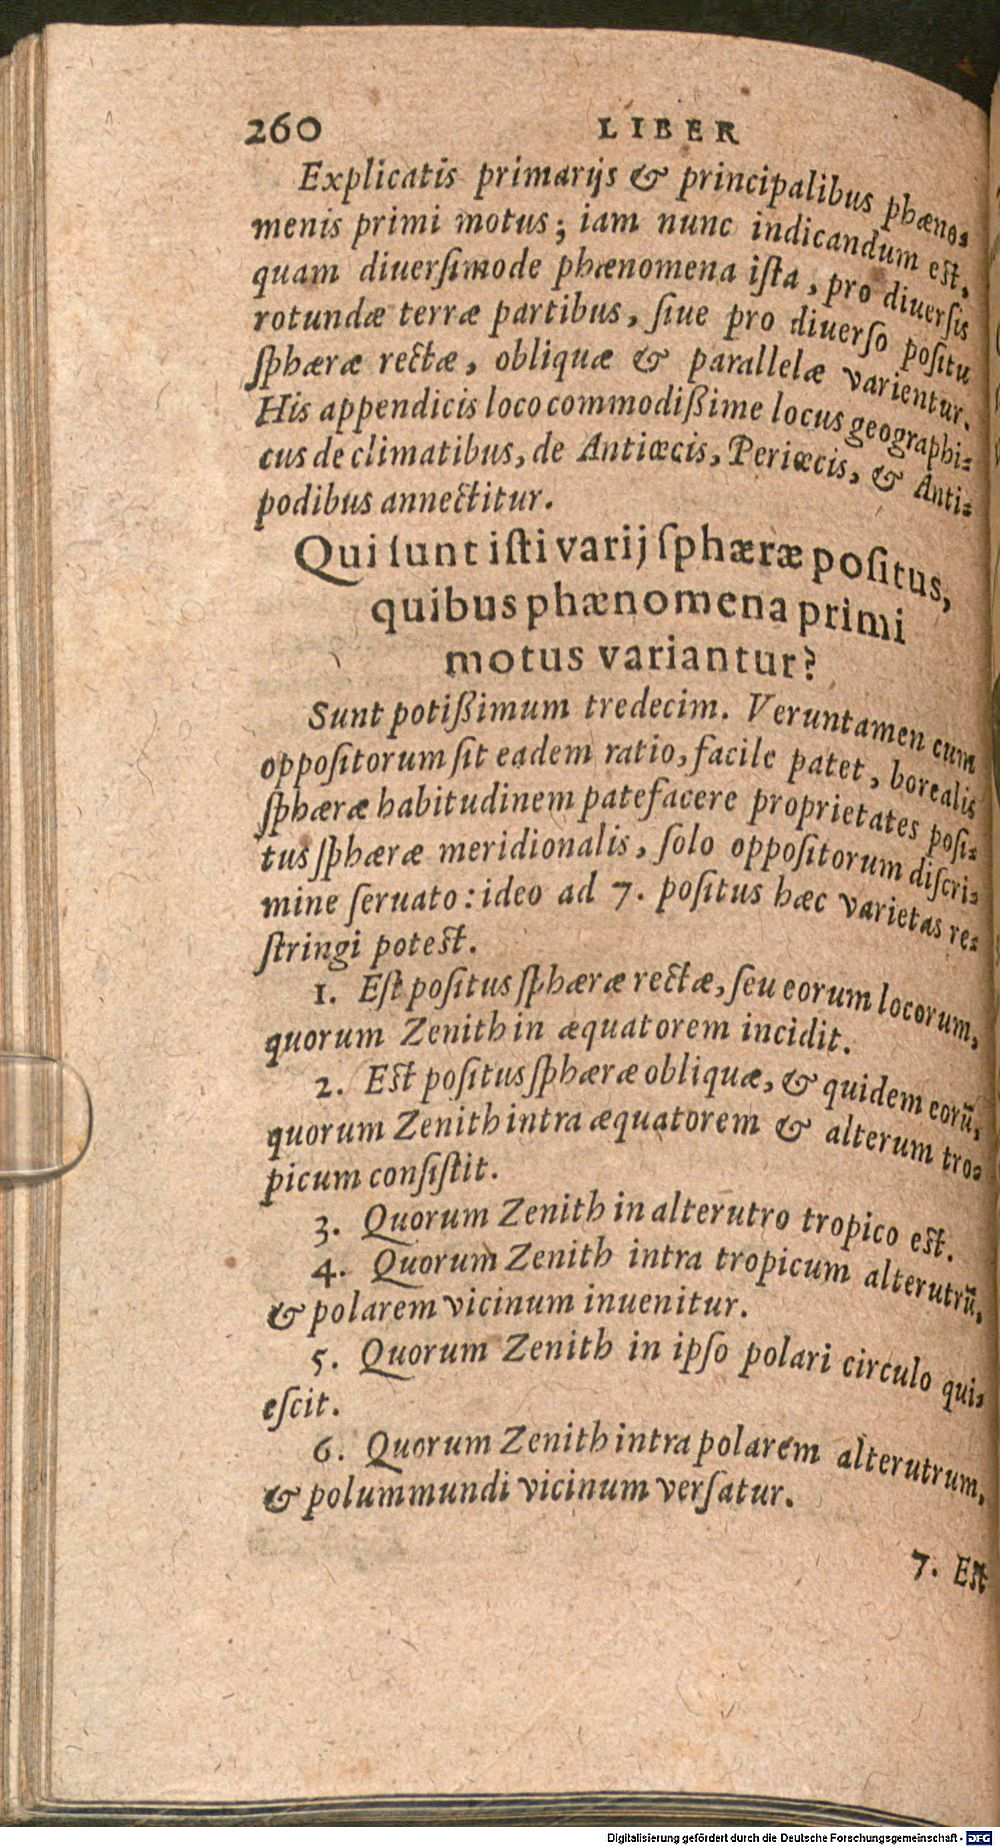 260 LIBER
Explicatis primarijs & principalibus phæno-
menis primi motus; iam nunc indicandum est,
quam diuersimode phænomena ista, pro diuersis
rotundæ terræ partibus, siue pro diuerso positu
sphæræ rectæ, obliquæ & parallelæ varientur.
His appendicis loco commodißime locus geographi-
cus de climatibus, de Antiœcis, Periœcis, & Anti-
podibus annectitur.
Qui sunt isti varij sphæræ positus,
quibus phænomena primi
motus variantur?
Sunt potißimum tredecim. Veruntamen cum
oppositorum sit eadem ratio, facile patet, borealis
sphæræ habitudinem patefacere proprietates posi-
tus sphæræ meridionalis, solo oppositorum discri-
mine seruato: ideo ad 7. positus hæc varietas re-
stringi potest.
1. Est positus sphæræ rectæ, seu eorum locorum,
quorum Zenith in æquatorem incidit.
2. Est positus sphæræ obliquæ, & quidem eorū,
quorum Zenith intra æquatorem & alterum tro-
picum consistit.
3. Quorum Zenith in alterutro tropico est.
4. Quorum Zenith intra tropicum alterutrū,
& polarem vicinum inuenitur.
5. Quorum Zenith in ipso polari circulo qui-
escit.
6. Quorum Zenith intra polarem alterutrum,
& polum mundi vicinum versatur.
7. Est
Digitalisierung gefördert durch die Deutsche Forschungsgemeinschaft - DFG